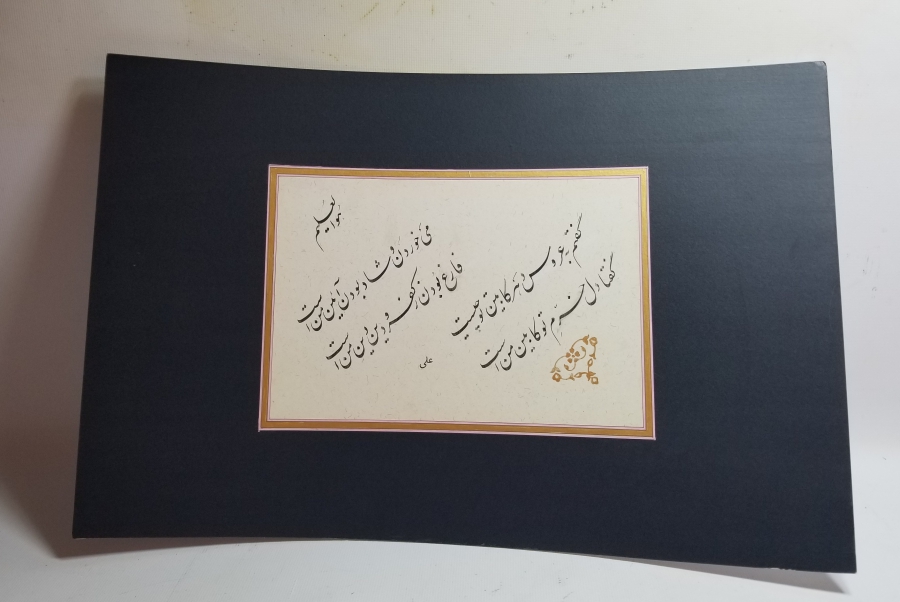 هوالعلیم
می خوردن و شاد بودن آیین من است
فارغ بودن ز کفر و دین دین من است
گفتم به عروس دهر کابین تو چیست
گفتا دل خرم تو کابین من است
علی